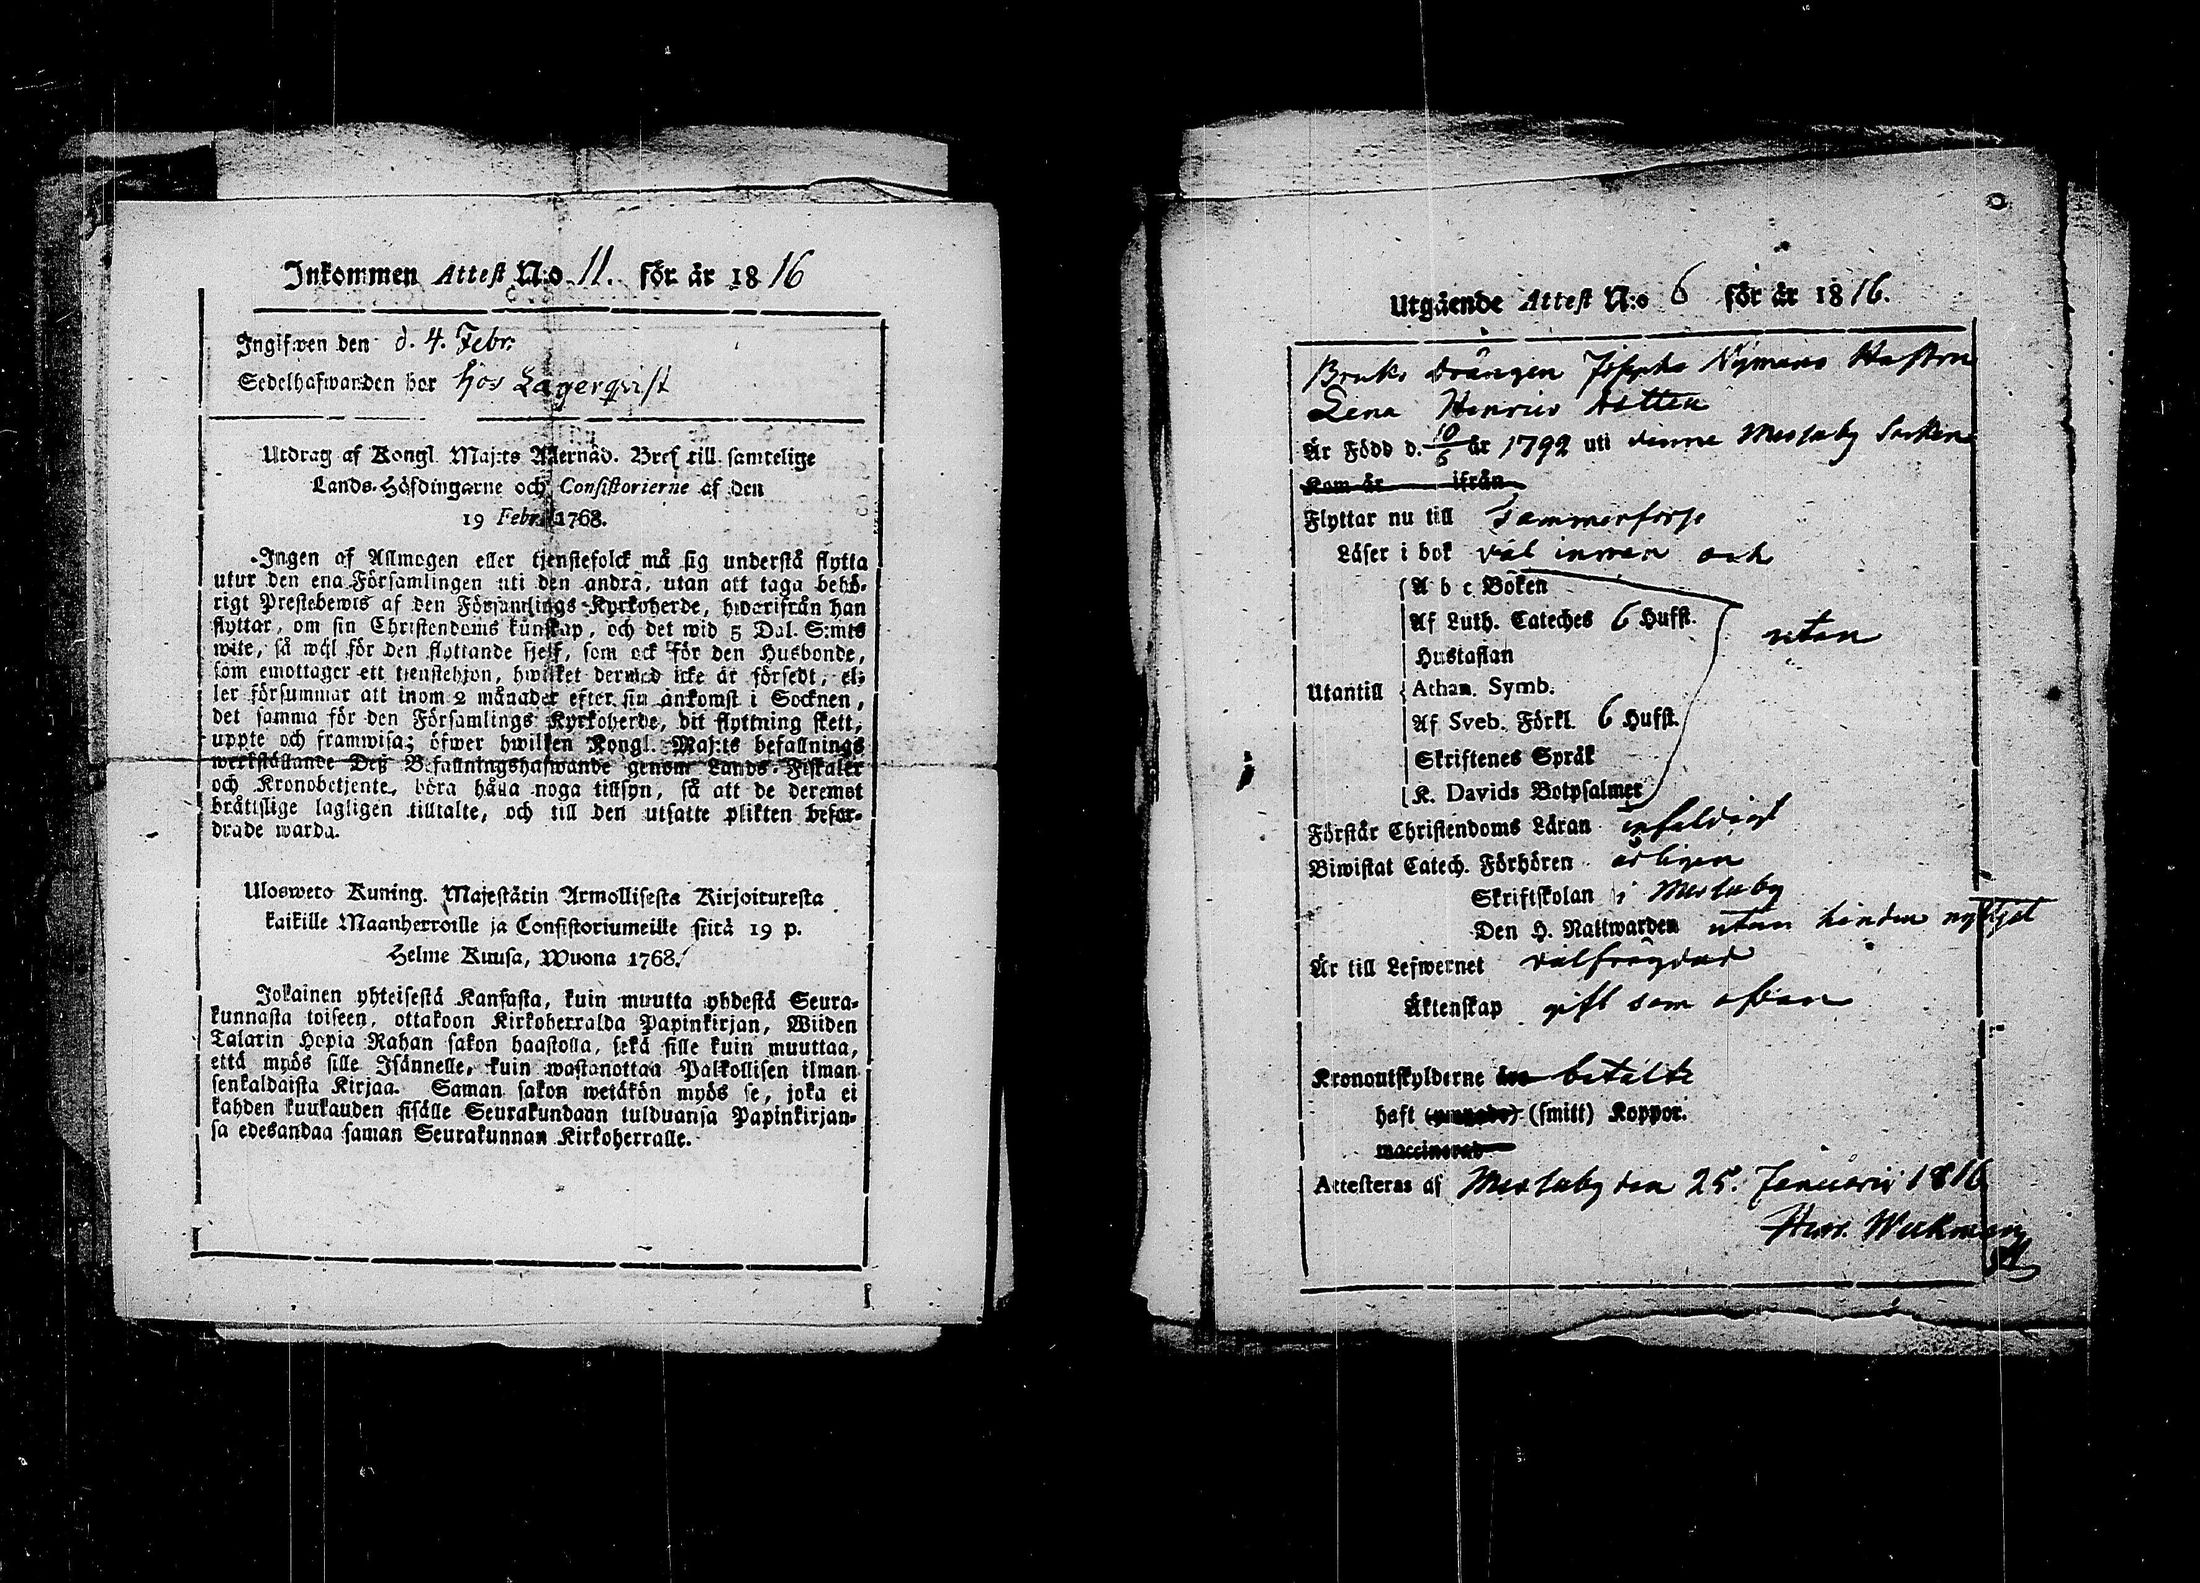 Inkommen Attest N:o 11. för år 1816
Ingifwen den d. 4. Febr.
Sedelhafwanden bor hos Lagerqvist
Utdrag af Kongl. Maj:ts Allernåd. Bref till samtelige
Lands-Höfdingarne och Consistorierne af den
19 Febr. 1768.
Ingen af Allmogen eller tjenstefolck må sig understå flytta
utur den ena Församlingen uti den andra, utan att taga behö-
rigt Prestebewis af den Församlings-Kyrkoherde, hwarifrån han
flyttar, om sin Christendoms kunskap, och det wid 5 Dal. S:mts
wite, så wäl för den flyttande sjelf, som ock för den Husbonde,
som emottager ett tjenstehjon, hwilket dermed icke är försedt, el-
ler försummar att inom 2 månader efter sin ankomst i Socknen,
det samma för den Församlings Kyrkoherde, dit flyttning skett,
uppte och framwisa; öfwer hwilken Kongl. Maj:ts befallnings
werkställande Deß Befallningshafwande genom Lands-Fiskaler
och Kronobetjente, böra hålla noga tillsyn, så att de deremot
brätislige lagligen tilltalte, och till den utsatte plikten befor-
drade warda.
Ulosweto Kuning. Majestätin Armollisesta Kirjoituxesta
kaikille Maanherroille ja Consistoriumeille siitä 19 p.
Helme Kuusa, Wuona 1768.
Jokainen yhteisestä Kansasta, kuin muutta yhdestä Seura-
kunnasta toiseen, ottakoon Kirkoherralda Papinkirjan, Wiiden
Talarin Hopia Rahan sakon haastolla, sekä sille kuin muuttaa,
että myös sille Isännelle, kuin wastanottaa Palkollisen ilman
senkaldaista Kirjaa. Saman sakon wetäkön myös se, joka ei
kahden kuukauden sisälle Seurakundaan tulduansa Papinkirjan-
sa edesandaa saman Seurakunnan Kirkoherralle.
Utgående Attest N:o 6 för år 1816.
Bruks drängen Josephs Nymans Hustru
Lena Henrics dotter
Är Född d. 10/6 år 1792 uti denne Socken
Kom år ifrån
Flyttar nu till
Läser i bok väl innan och
A b c Boken
Af Luth. Cateches 6 Hufst.
utan
Hustaflan
Utantill Athan. Symb.
Af Sveb. Förkl. 6 Hufst.
Skriftenes Språk
K. Davids Botpsalmer
Förstår Christendoms Läran enfaldigt
Biwistat Catech. Förhören årligen
Skriftskolan i
Den H. Nattwarden utan hinder nyttjat
Är till Lefwernet välfrägdad
Äktenskap gift som ofvan
Kronoutskylderne äro betalte
haft (smitt) Koppor.
waccinerad
Attesteras af den 25. Januarii 1816